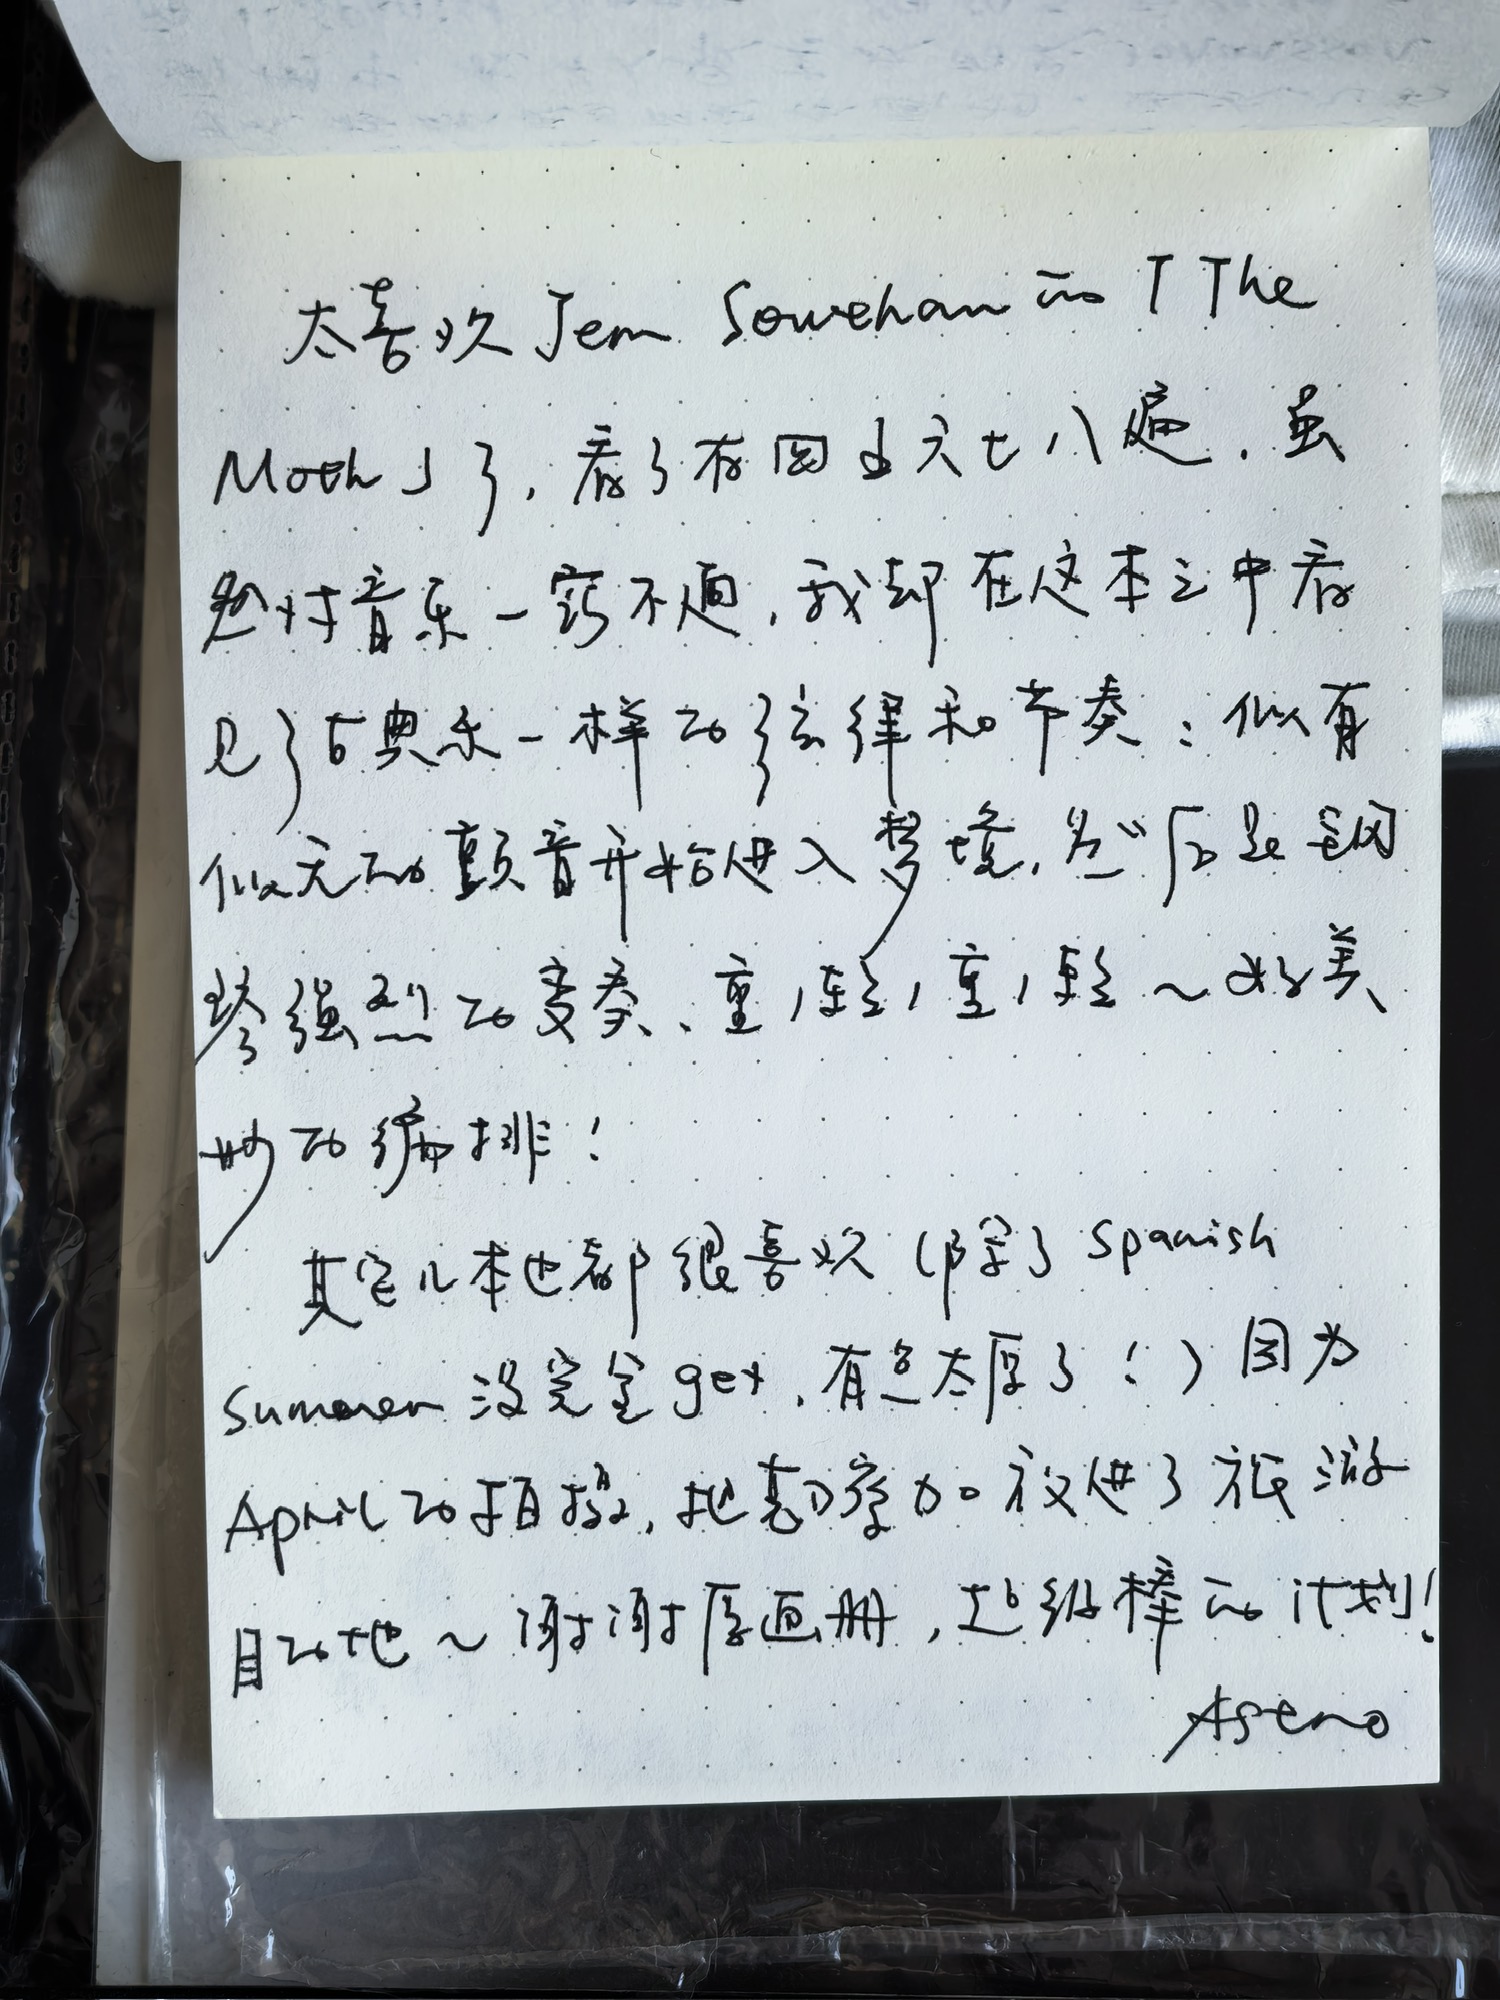 太喜欢 Jem Southam 的「The
Moth」了，看了有四五六七八遍，虽
然对音乐一窍不通，我却在这本之中看
见了古典乐一样的弦律和节奏：似有
似无的颤音开始进入梦境，然后是钢
琴强烈的变奏、重，轻，重，轻～好美
妙的编排！
其它几本也都很喜欢（除了 Spanish
Summer 没完全 get，有点太厚了！）因为
April 的拍摄，把
加 放进了旅游
目的地～谢谢厚画册，超级棒的计划！